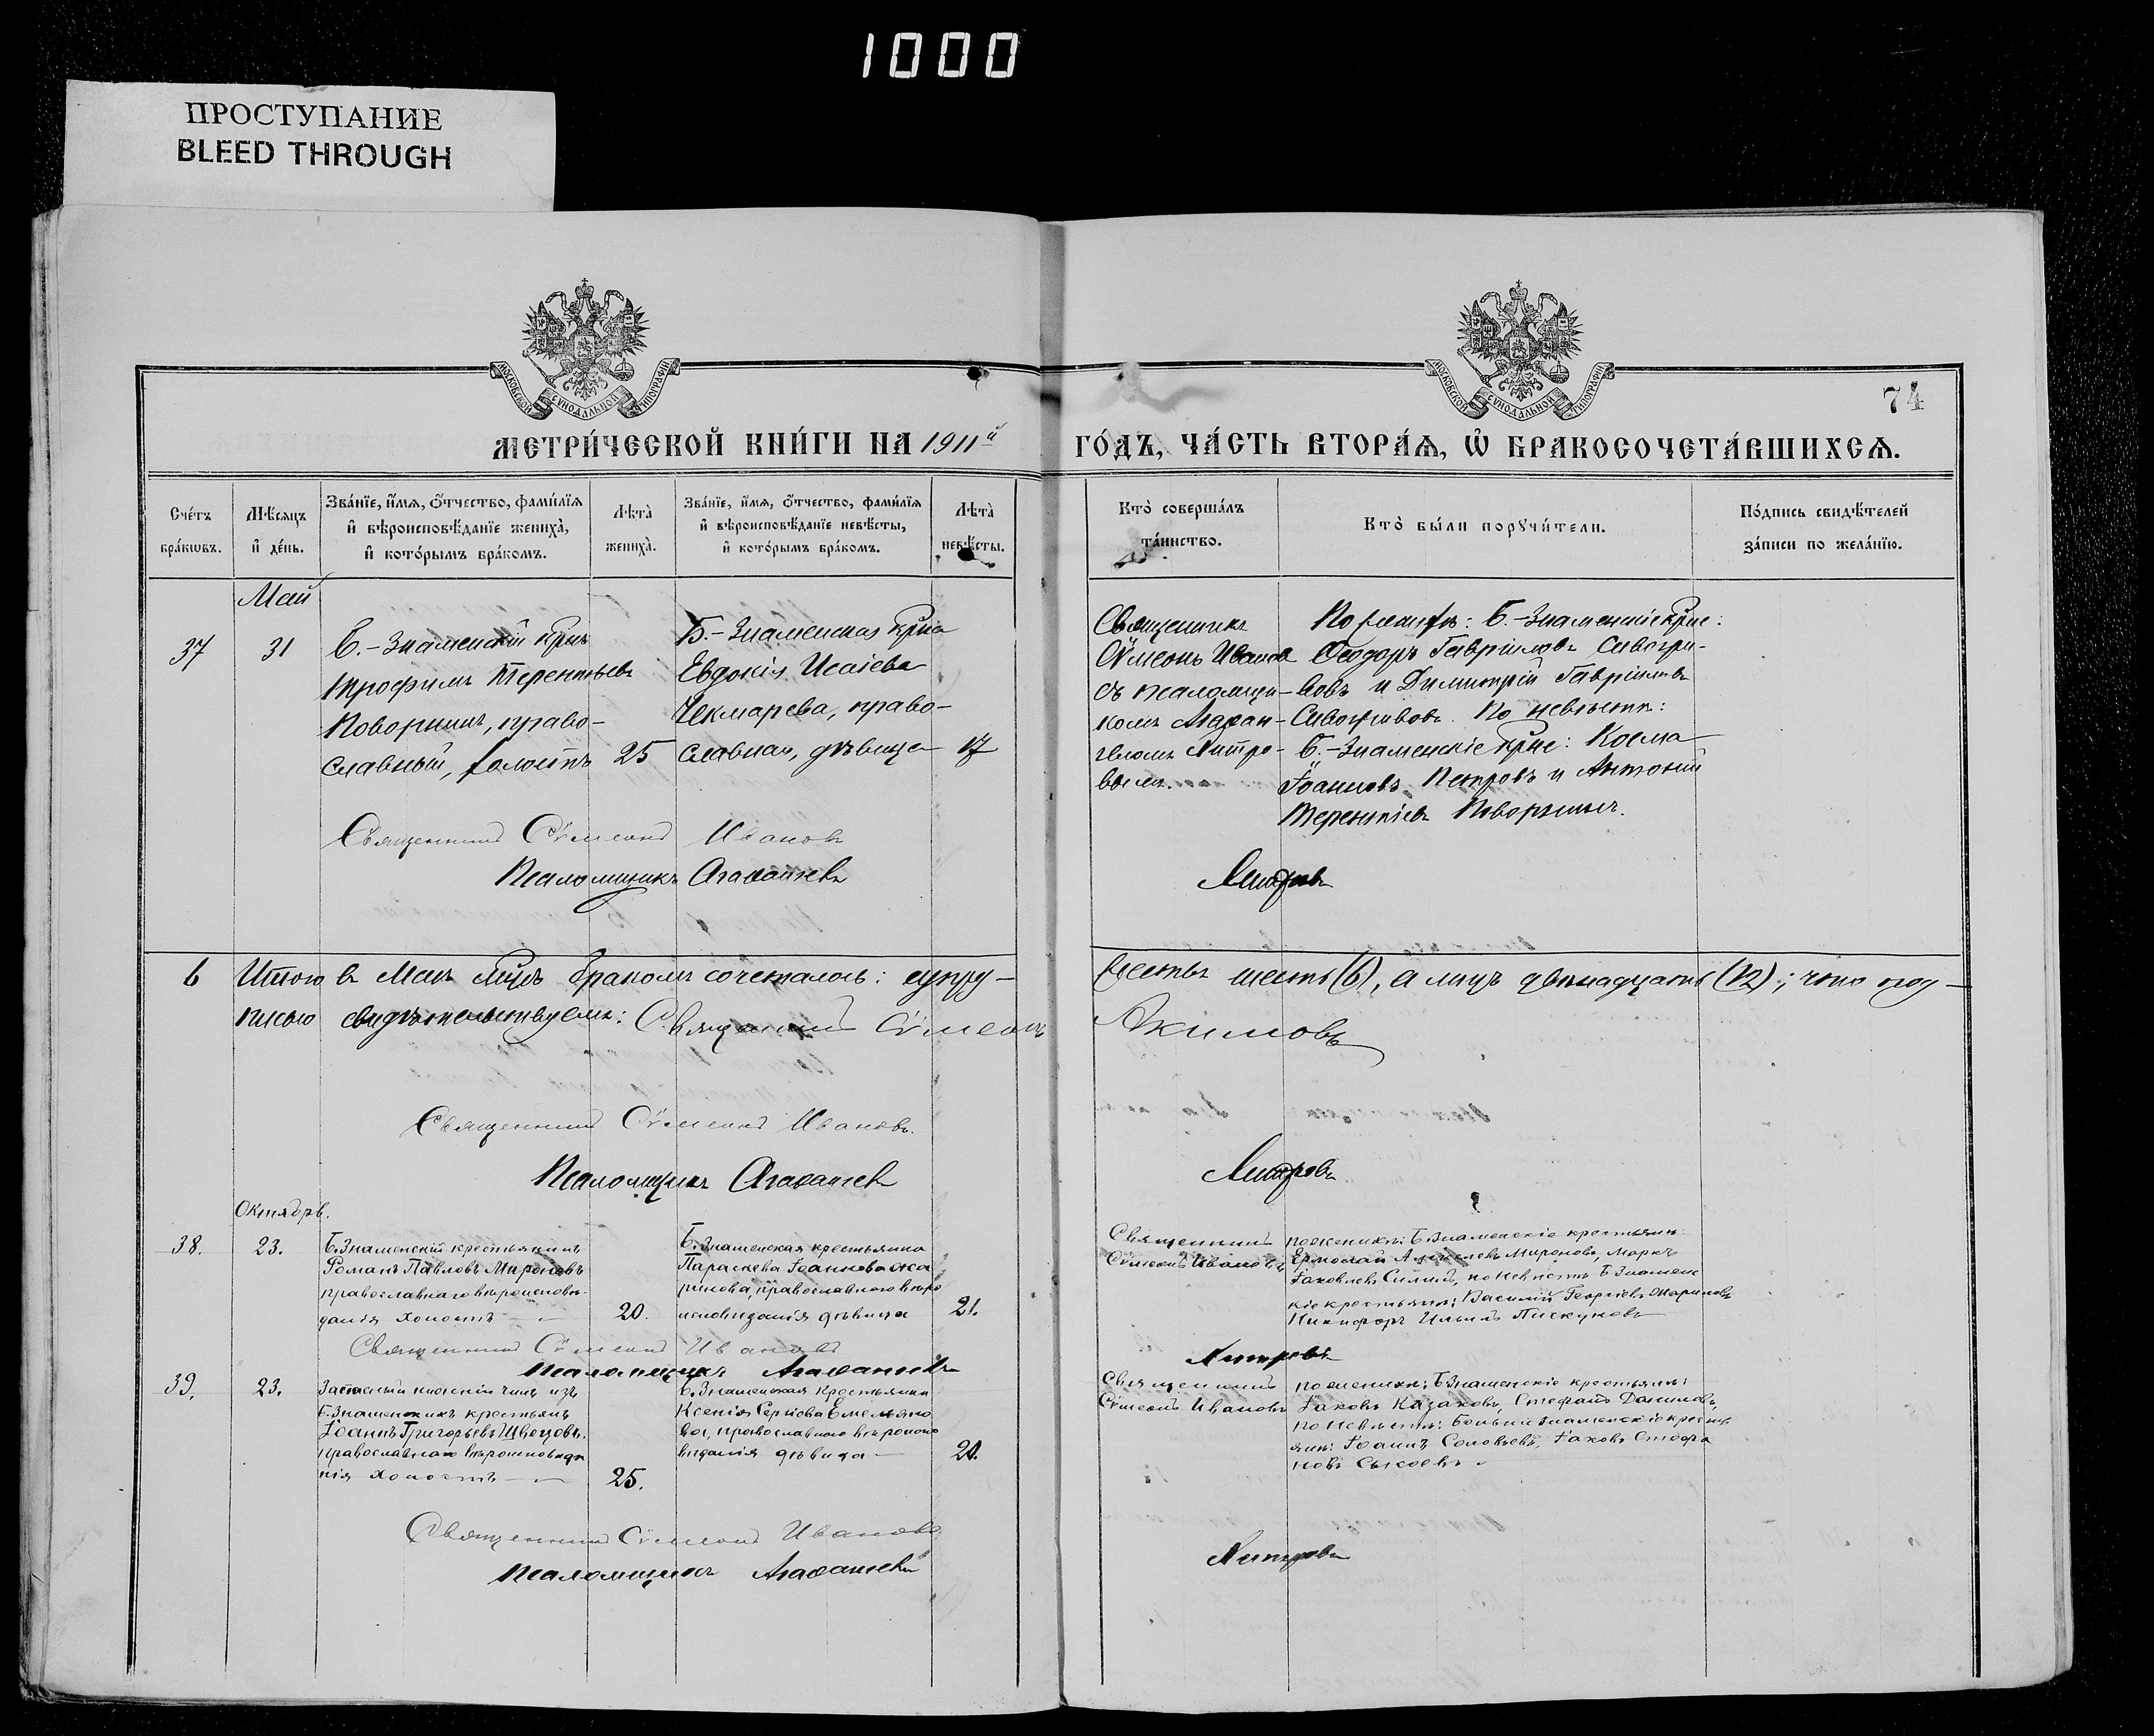 1000
ПРОСТУПАНИЕ
BLEED THROUGH
МОСКОВСКОЙ СѴНОДАЛЬНОЙ ТИПОГРАФІИ
МОСКОВСКОЙ СѴНОДАЛЬНОЙ ТИПОГРАФІИ
74
МЕТРИ́ЧЕСКОЙ КНИ́ГИ НА 1911й
ГО́ДЪ, ЧА́СТЬ ВТОРА́Ѧ, Ѡ БРАКОСОЧЕТА́ВШИХСѦ.
Сче́тъ
бра́кѡвъ.
Мѣ́сяцъ
и҆ де́нь.
Зва́нїе, и҆́мѧ, ѻ҆́тчество, фами́лїѧ
и҆ вѣроисповѣ́данїе женихà,
и҆ кото́рымъ бра́комъ.
Лѣ́та
женихà.
Зва́нїе, и҆́мѧ, ѻ҆́тчество, фами́лїѧ
и҆ вѣроисповѣ́данїе невѣ́сты,
и҆ кото́рымъ бра́комъ.
Лѣ́та
невѣ́сты.
Кто̀ соверша́лъ
та́инство.
Кто̀ бы́ли порꙋчи́тели.
По́дпись свидѣ́телей
за́писи по жела́нїю.
Май
37
31
Б.-Знаменскій крнъ
Трофимъ Терентьевъ
Поворинъ, право-
славный, холостъ
25
Б.-Знаменская крна
Евдокія Исаіева
Чекмарева, право-
славная, дѣвица
17
Священникъ
Сѵмеонъ Иванов
съ псаломщи-
комъ
вымъ.
По женихѣ: Б.-Знаменскіе крне:
Ѳеодоръ Гавріиловъ
и Димитрій Гавріиловъ
По невѣстѣ:
Б.-Знаменскіе крне: Косма
Іоанновъ Петровъ и Антоній
Терентіевъ Поворинъ.
Священникъ Сѵмеонъ Ивановъ
Псаломщикъ
6
Итого въ Маѣ мцѣ бракомъ сочеталось: супру-
жествъ шесть (6), а лицъ двѣнадцать (12); что под-
писью свидѣтельствуемъ: Священникъ Сѵмеонъ
Акимовъ
Священникъ Сѵмеонъ Ивановъ.
Псаломщикъ
Октябрь.
38.
23.
Б.Знаменскій крестьянинъ
Романъ Павловъ Мироновъ
православнаго вѣроисповѣ-
данія холостъ
20.
Б.Знаменская крестьянка
Параскева Іоаннова Жа
ринова, православнаго вѣро
исповѣданія дѣвица
21.
Священникъ
Сѵмеонъ Ивановъ
по женихѣ: Б.Знаменскіе крестьяне
Ермолай Мироновъ, Маркъ
Іаковлевъ по невѣстѣ Б Знаменс
кіе крестьяне: Василій Георгіевъ Жариновъ
Никифоръ Ильинъ Пискуновъ
Священникъ Сѵмеонъ Ивановъ
Псаломщикъ
39.
23.
Запасный нижній чинъ изъ
Б.Знаменскихъ крестьянъ
Іоаннъ Григорьевъ Швецовъ.
православнаго вѣроисповѣда
нія холостъ
25.
Б.Знаменская крестьянка
Ксенія Сергіова Емельяно
ва, православнаго вѣроиспо
вѣданія дѣвица
Священникъ
Сѵмеонъ Ивановъ
по женихѣ: Б.Знаменскіе крестьяне:
Іаковъ Казаковъ, Стефанъ Даниловъ,
по невѣстѣ: Больше Знаменскіе кресть
яне: Іоаннъ Соловьевъ, Іаковъ Стефа
новъ Сысоевъ
Священникъ Сѵмеонъ Ивановъ
Псаломщикъ